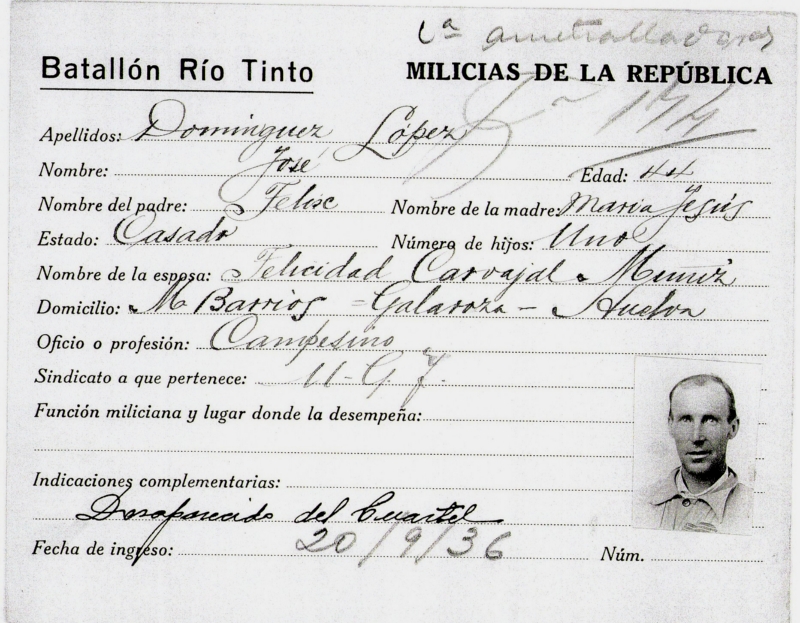 1ª ametralladoras
Batallón Río Tinto
MILICIAS DE LA REPÚBLICA
Apellidos: Domínguez López
Nombre: José Edad: 44
Nombre del padre: Felix Nombre de la madre: Maria Jesús
Estado: Casado Número de hijos: Uno
Nombre de la esposa: Felicidad Carvajal Muñiz
Domicilio: M Barrios = Galaroza - Huelva
Oficio o profesión: Campesino
Sindicato a que pertenece: U-G T.
Función miliciana y lugar donde la desempeña:
Indicaciones complementarias:
Desaparecido del Cuartel
Fecha de ingreso: 20/9/36 Núm.